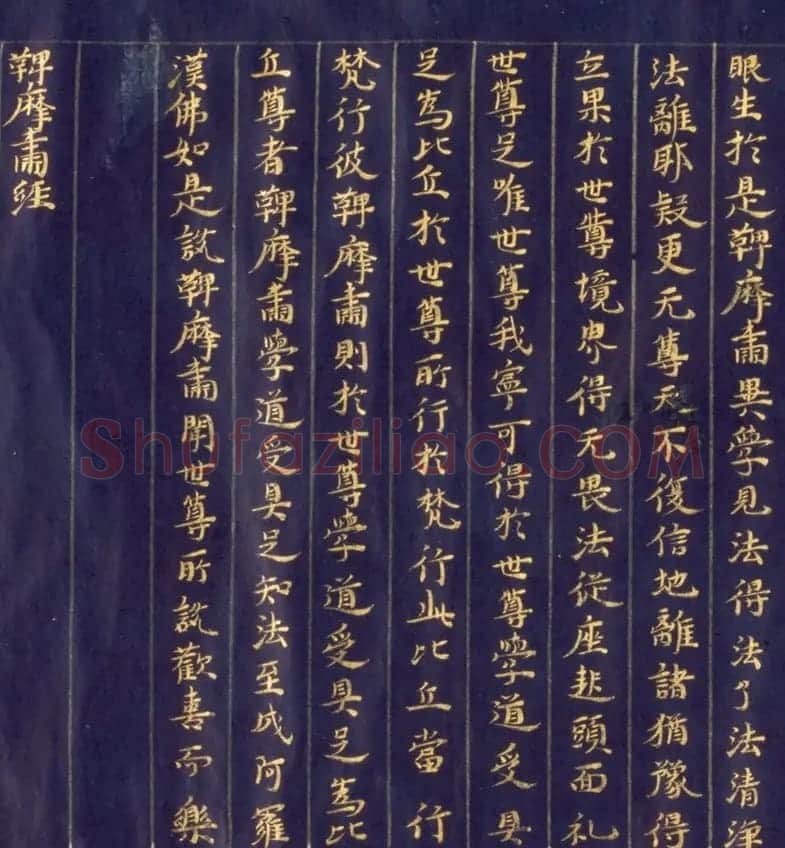 眼生於是鞞摩肅異學見法得法了法清淨
法離耶疑更无尊天不復信地離諸猶豫得
立果於世尊境界得无畏法從座起頭面礼
世尊足唯世尊我寧可得於世尊學道受具
足為比丘於世尊所行於梵行此比丘當行
梵行彼鞞摩肅則於世尊學道受具足為比
丘尊者鞞摩肅學道受具足知法至成阿羅
漢佛如是說鞞摩肅聞世尊所說歡喜而樂
鞞摩肅經
Shufaziliao.COM